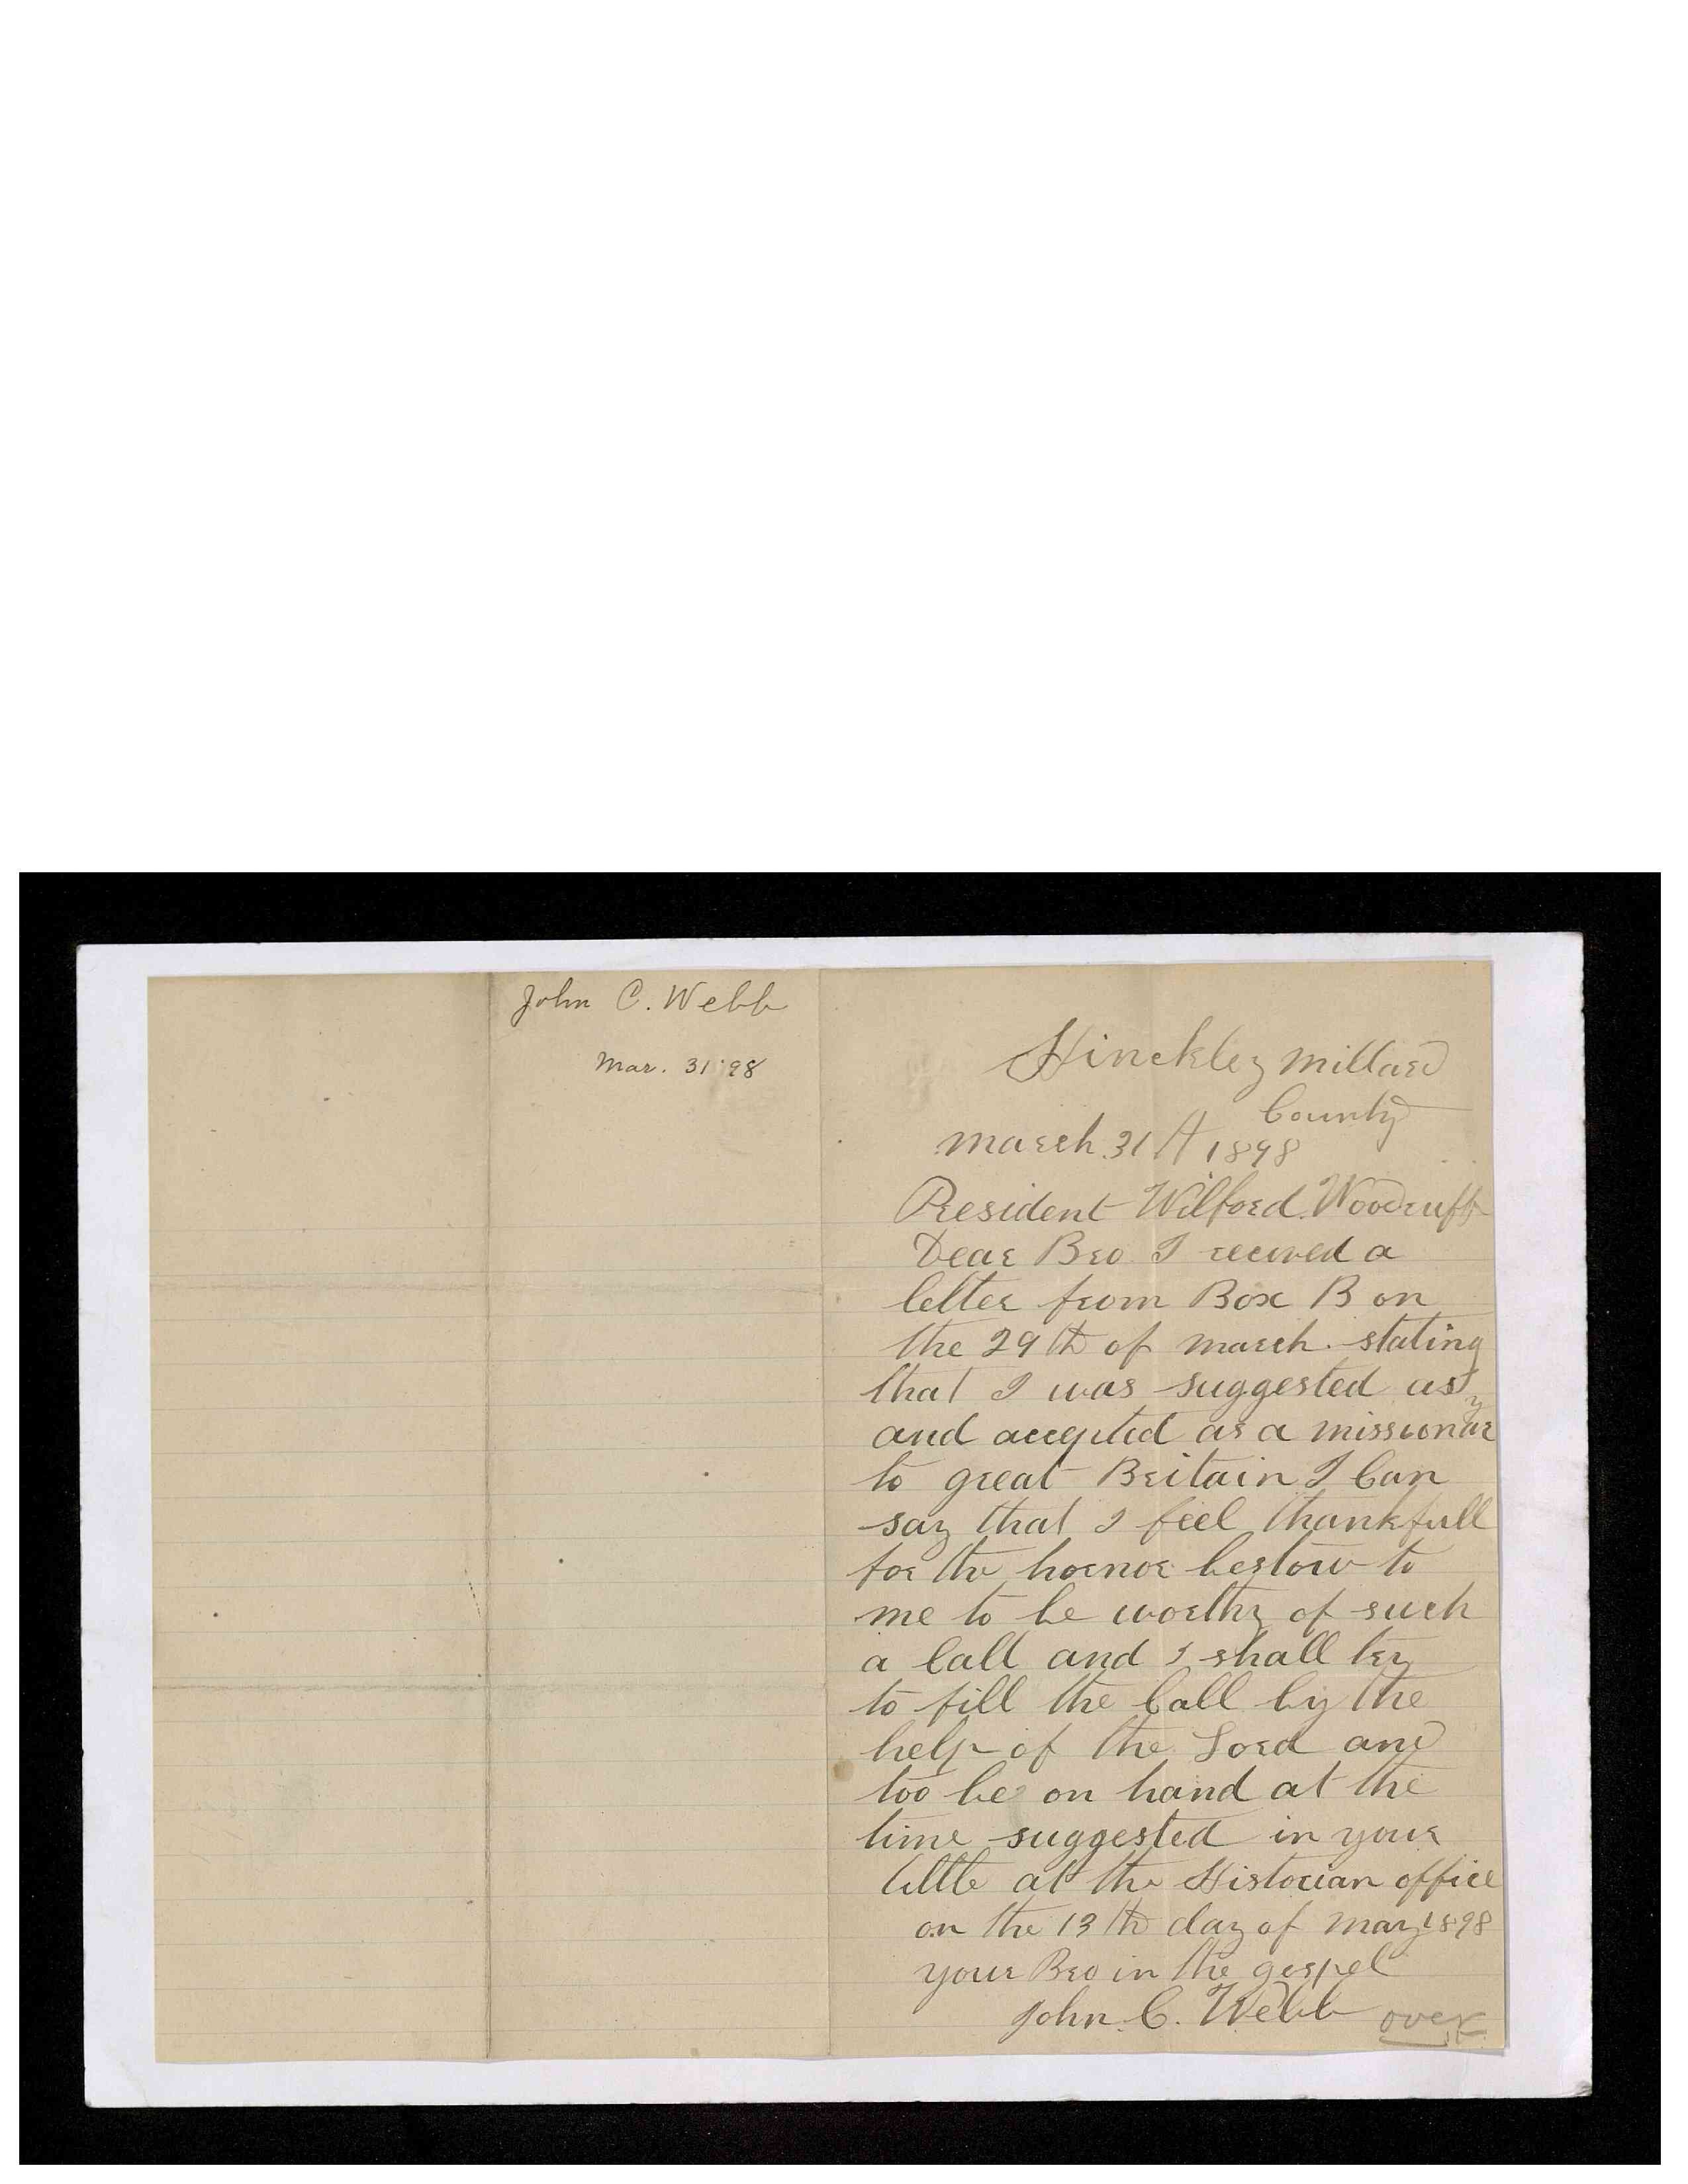 John C. Webb
Mar. 31 '98
Hinckley Millard
County
march 31st 1898
President Wilford Woodruff
Dear Bro I recived a
letter from Box B on
the 29th of march. stating
that I was suggested as
and accepted as a missionary
to great Britain I Can
say that I feel thankfull
for the hornor bestow to
me to be worthy of such
a Call and I shall try
to fill the Call by the
help of the Lord and
too be on hand at the
time suggested in your
at the Historian office
on the 13th day of may 1898
your Bro in the gospel
John C. Webb
over